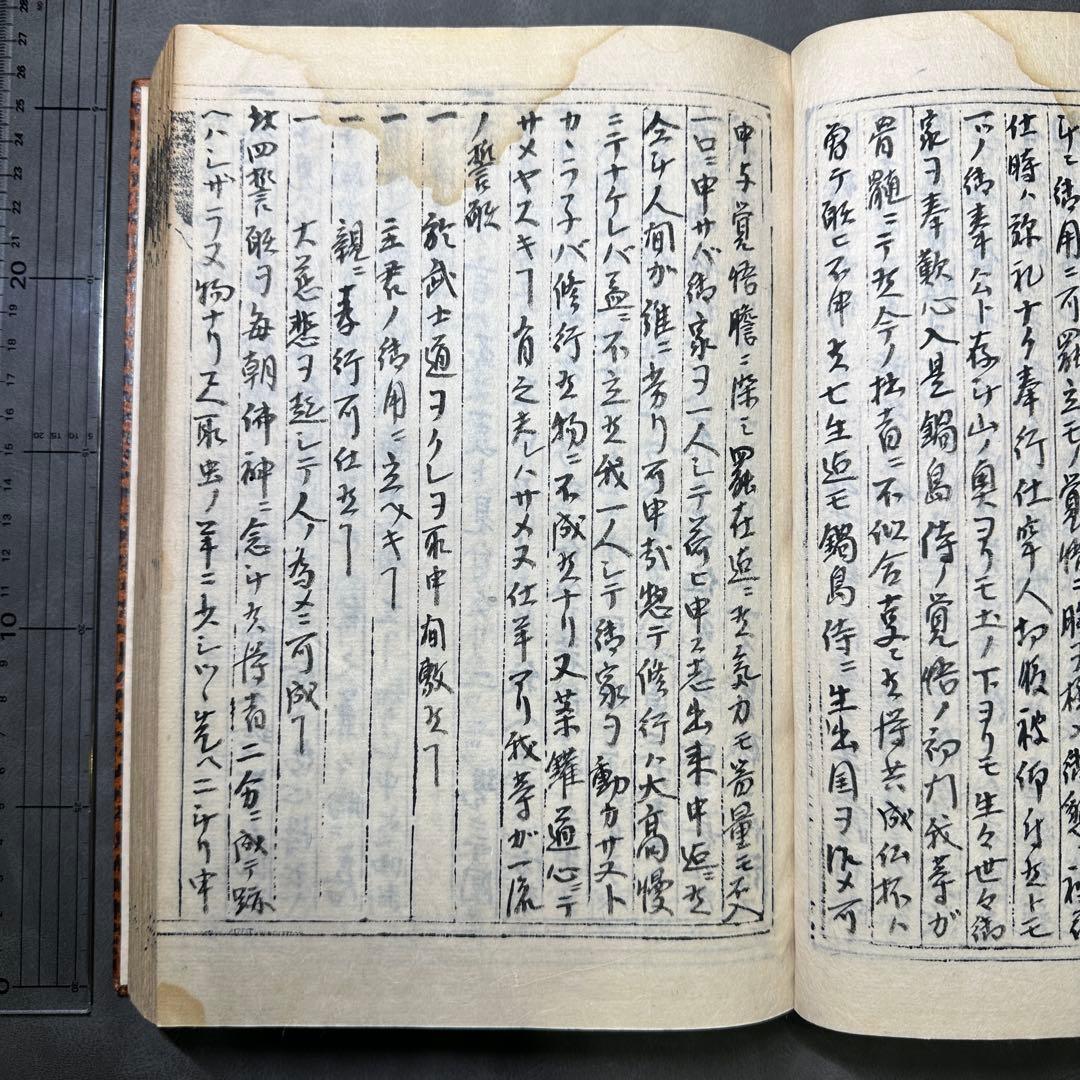 仕時ハ弥礼ナク奉行仕牢人切腹被仰付共トモ
一ツノ御奉公ト存ケ山ノ奥ヨリモ土ノ下ヨリモ生々世々御
家ヲ奉歎心入是鍋島侍ノ覚悟ノ初門我等ガ
骨髄ニテ候今ノ拙者ニ不似合事ニ候得共成仏杯ハ
曾テ願ヒ不申候七生迄モ鍋島侍ニ生出国ヲ治メ可
申与覚悟膽ニ染ミ罷在迄ニ候気力モ器量モ不入
一口ニ申サバ御家ヲ一人シテ荷ヒ申ス志出来申迄ニ候
今ケ人間ガ誰ニ劣リ可申哉惣テ修行ハ大高慢
ニテナケレバ益ニ不立候我一人シテ御家ヲ動カサヌト
カヽラネバ修行候物ニ不成候ナリ又薬鑵道心ニテ
サメヤスキヿ有之夫レハサメヌ仕羊アリ我等ガ一流
ノ誓願
一 於武士道ヲクレヲ取申間敷候ヿ
一 主君ノ御用ニ立ヘキヿ
一 親ニ孝行可仕候ヿ
一 大慈悲ヲ起シテ人ノ為メニ可成ヿ
此四誓願ヲ毎朝佛神ニ念ケ候得者二分ニ成テ跡
ヘハシザラヌ物ナリ尺取虫ノ羊ニ少シツヽ先ヘニシリ申